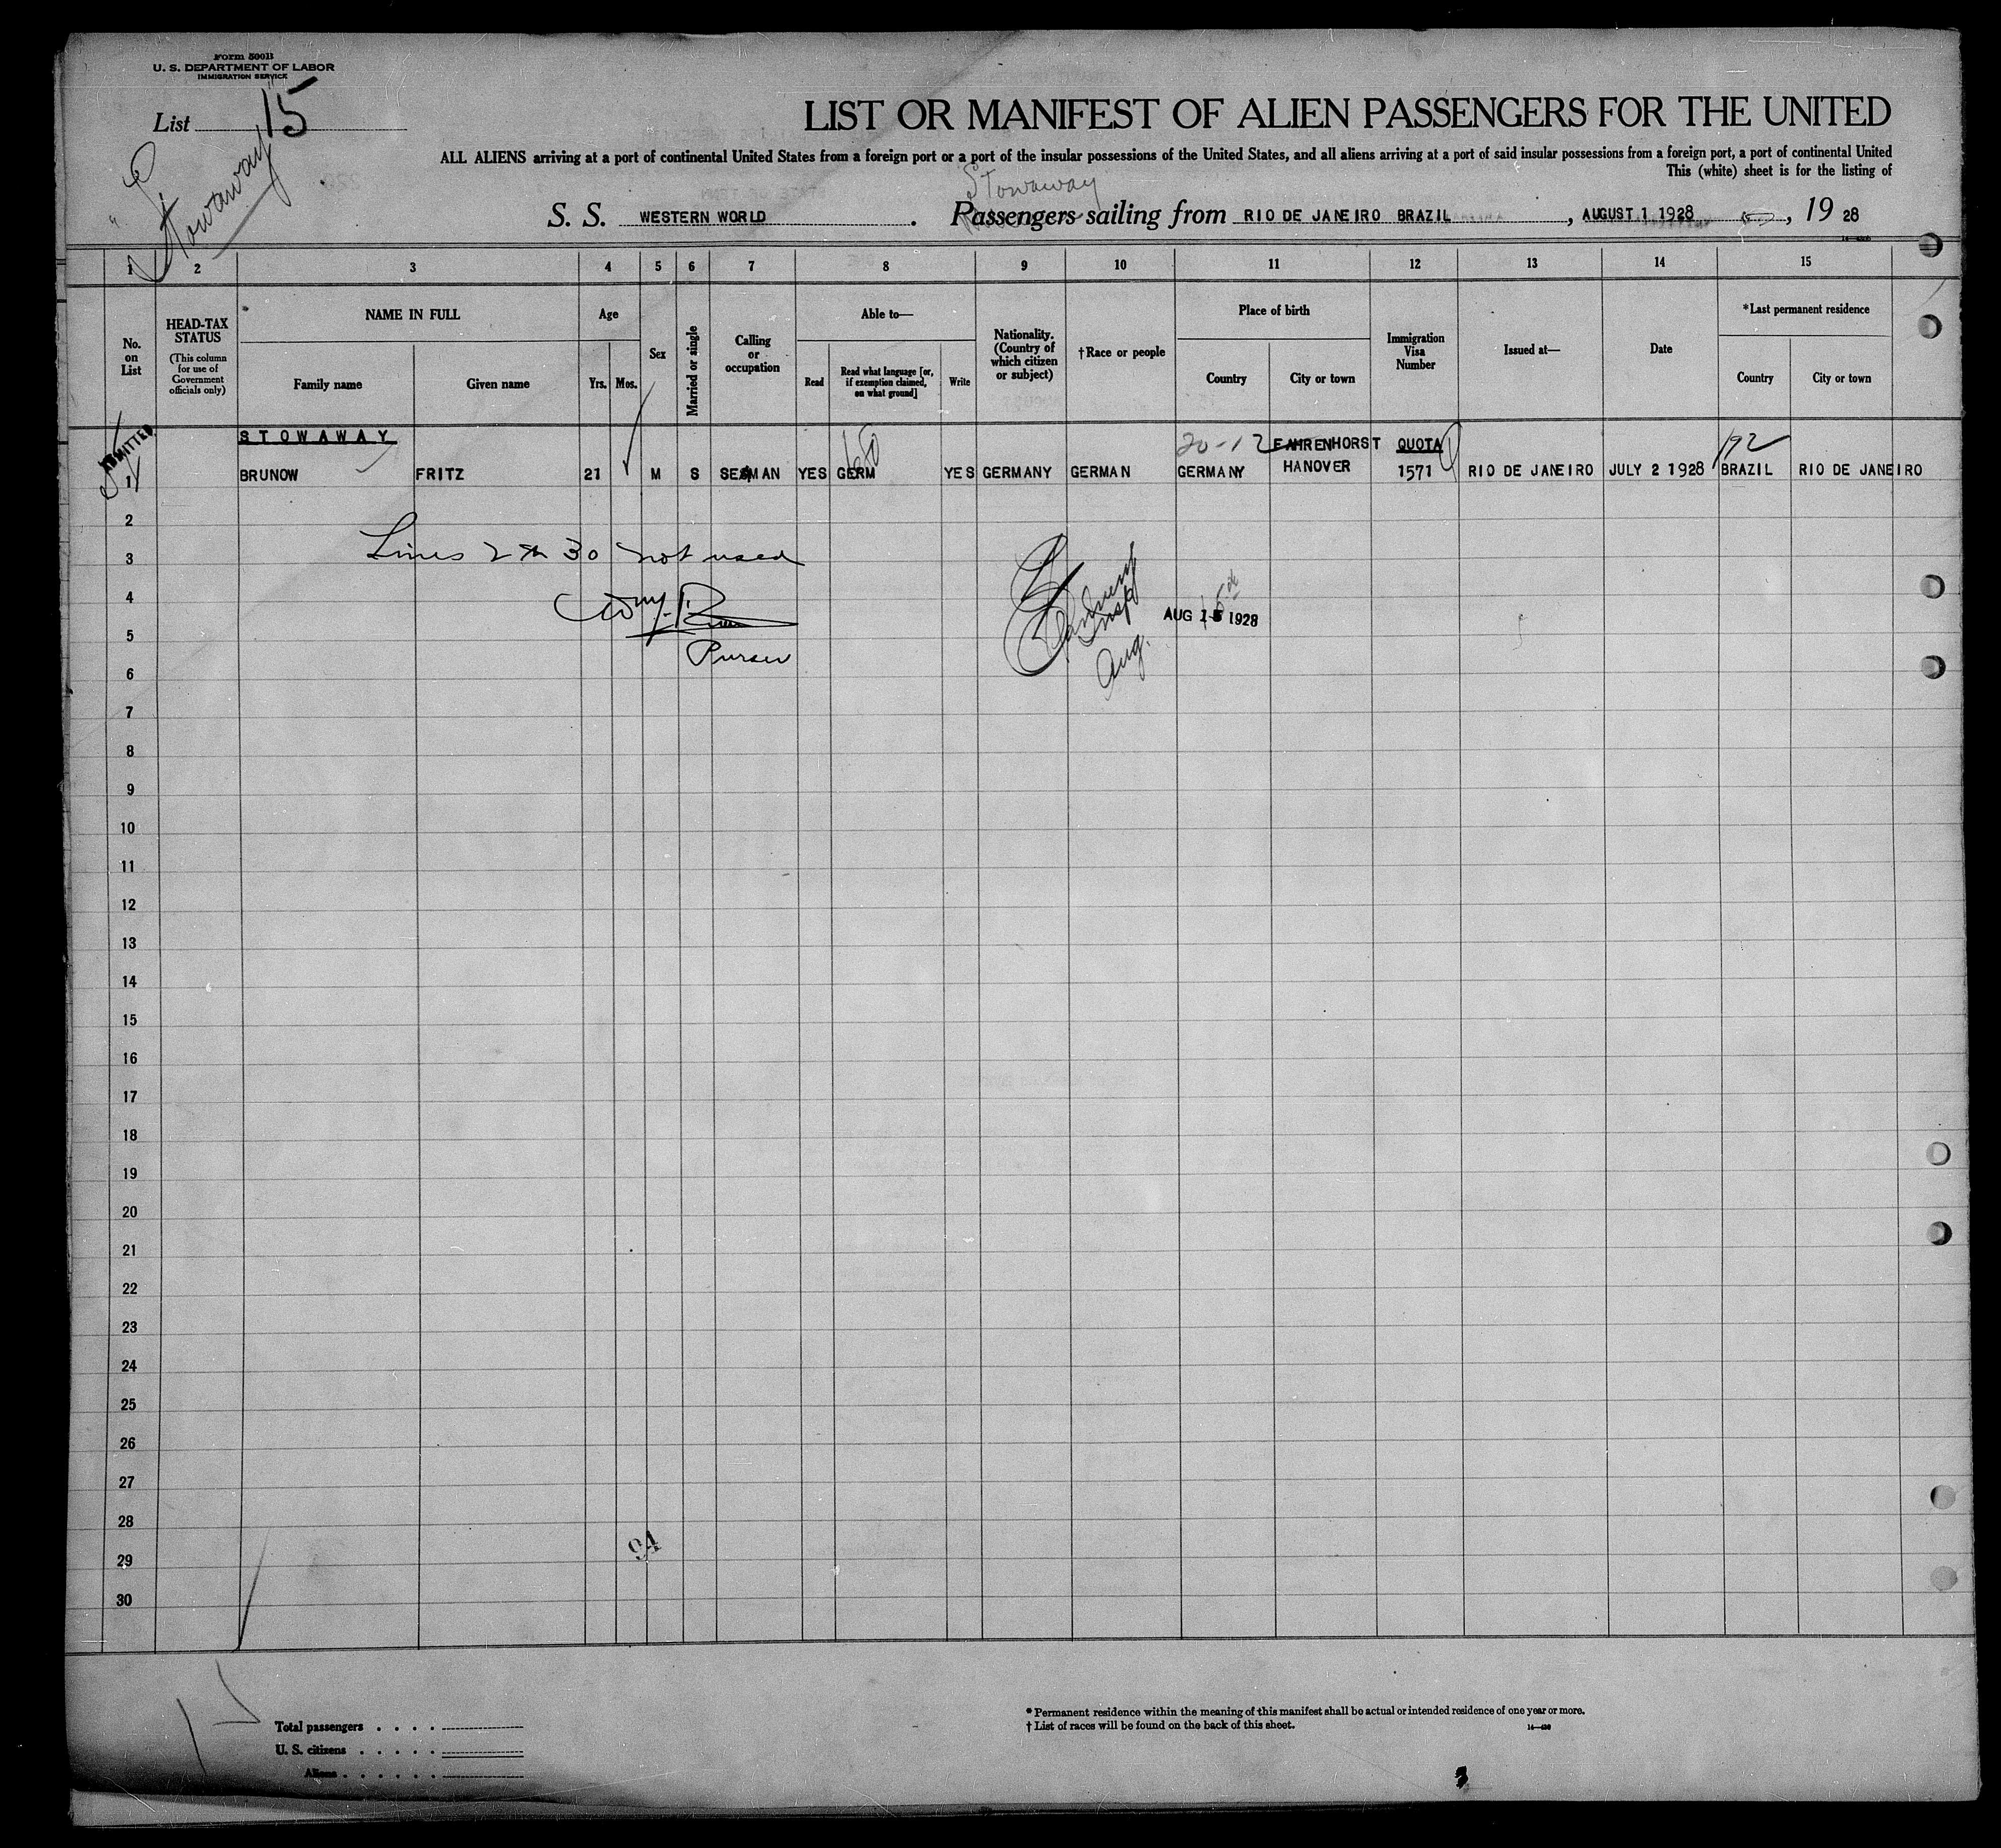 Form 500B
U. S. DEPARTMENT OF LABOR
IMMIGRATION SERVICE
List 15
"Stowaway"
LIST OR MANIFEST OF ALIEN PASSENGERS FOR THE UNITED
ALL ALIENS arriving at a port of continental United States from a foreign port or a port of the insular possessions of the United States, and all aliens arriving at a port of said insular possessions from a foreign port, a port of continental United
This (white) sheet is for the listing of
Stowaway
S. S. WESTERN WORLD . Passengers sailing from RIO DE JANEIRO BRAZIL , AUGUST 1 1928 , 19 28
1 2 3 4 5 6 7 8 9 10 11 12 13 14 15
No. on List
HEAD-TAX STATUS
(This column for use of Government officials only)
NAME IN FULL
Family name
Given name
Age
Yrs.
Mos.
Sex
Married or single
Calling or occupation
Able to—
Read
Read what language [or, if exemption claimed, on what ground]
Write
Nationality. (Country of which citizen or subject)
†Race or people
Place of birth
Country
City or town
Immigration Visa Number
Issued at—
Date
*Last permanent residence
Country
City or town
ADMITTED
STOWAWAY
20-12 FAHRENHORST QUOTA 192
1 BRUNOW FRITZ 21 M S SEAMAN YES GERM YES GERMANY GERMAN GERMANY HANOVER 1571 RIO DE JANEIRO JULY 2 1928 BRAZIL RIO DE JANEIRO
2
3 Lines 2 to 30 not used
4
AUG 15 1928
5
Purser
Insp
Aug.
6
7
8
9
10
11
12
13
14
15
16
17
18
19
20
21
22
23
24
25
26
27
28
94
29
30
Total passengers . . . .
U. S. citizens . . . . .
Aliens . . . . . .
* Permanent residence within the meaning of this manifest shall be actual or intended residence of one year or more.
† List of races will be found on the back of this sheet.
3